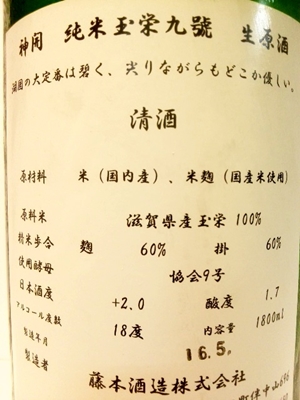 神開 純米玉栄九號 生原酒
湖国の大定番は碧く、尖りながらもどこか優しい。
清酒
原材料 米(国内産)、米麹(国産米使用)
原料米 滋賀県産玉栄 100%
精米歩合 麹 60% 掛 60%
使用酵母 協会9号
日本酒度 +2.0 酸度 1.7
アルコール度数 18度 内容量 1800ml
製造年月 16.5
製造者 藤本酒造株式会社
町伴中山696